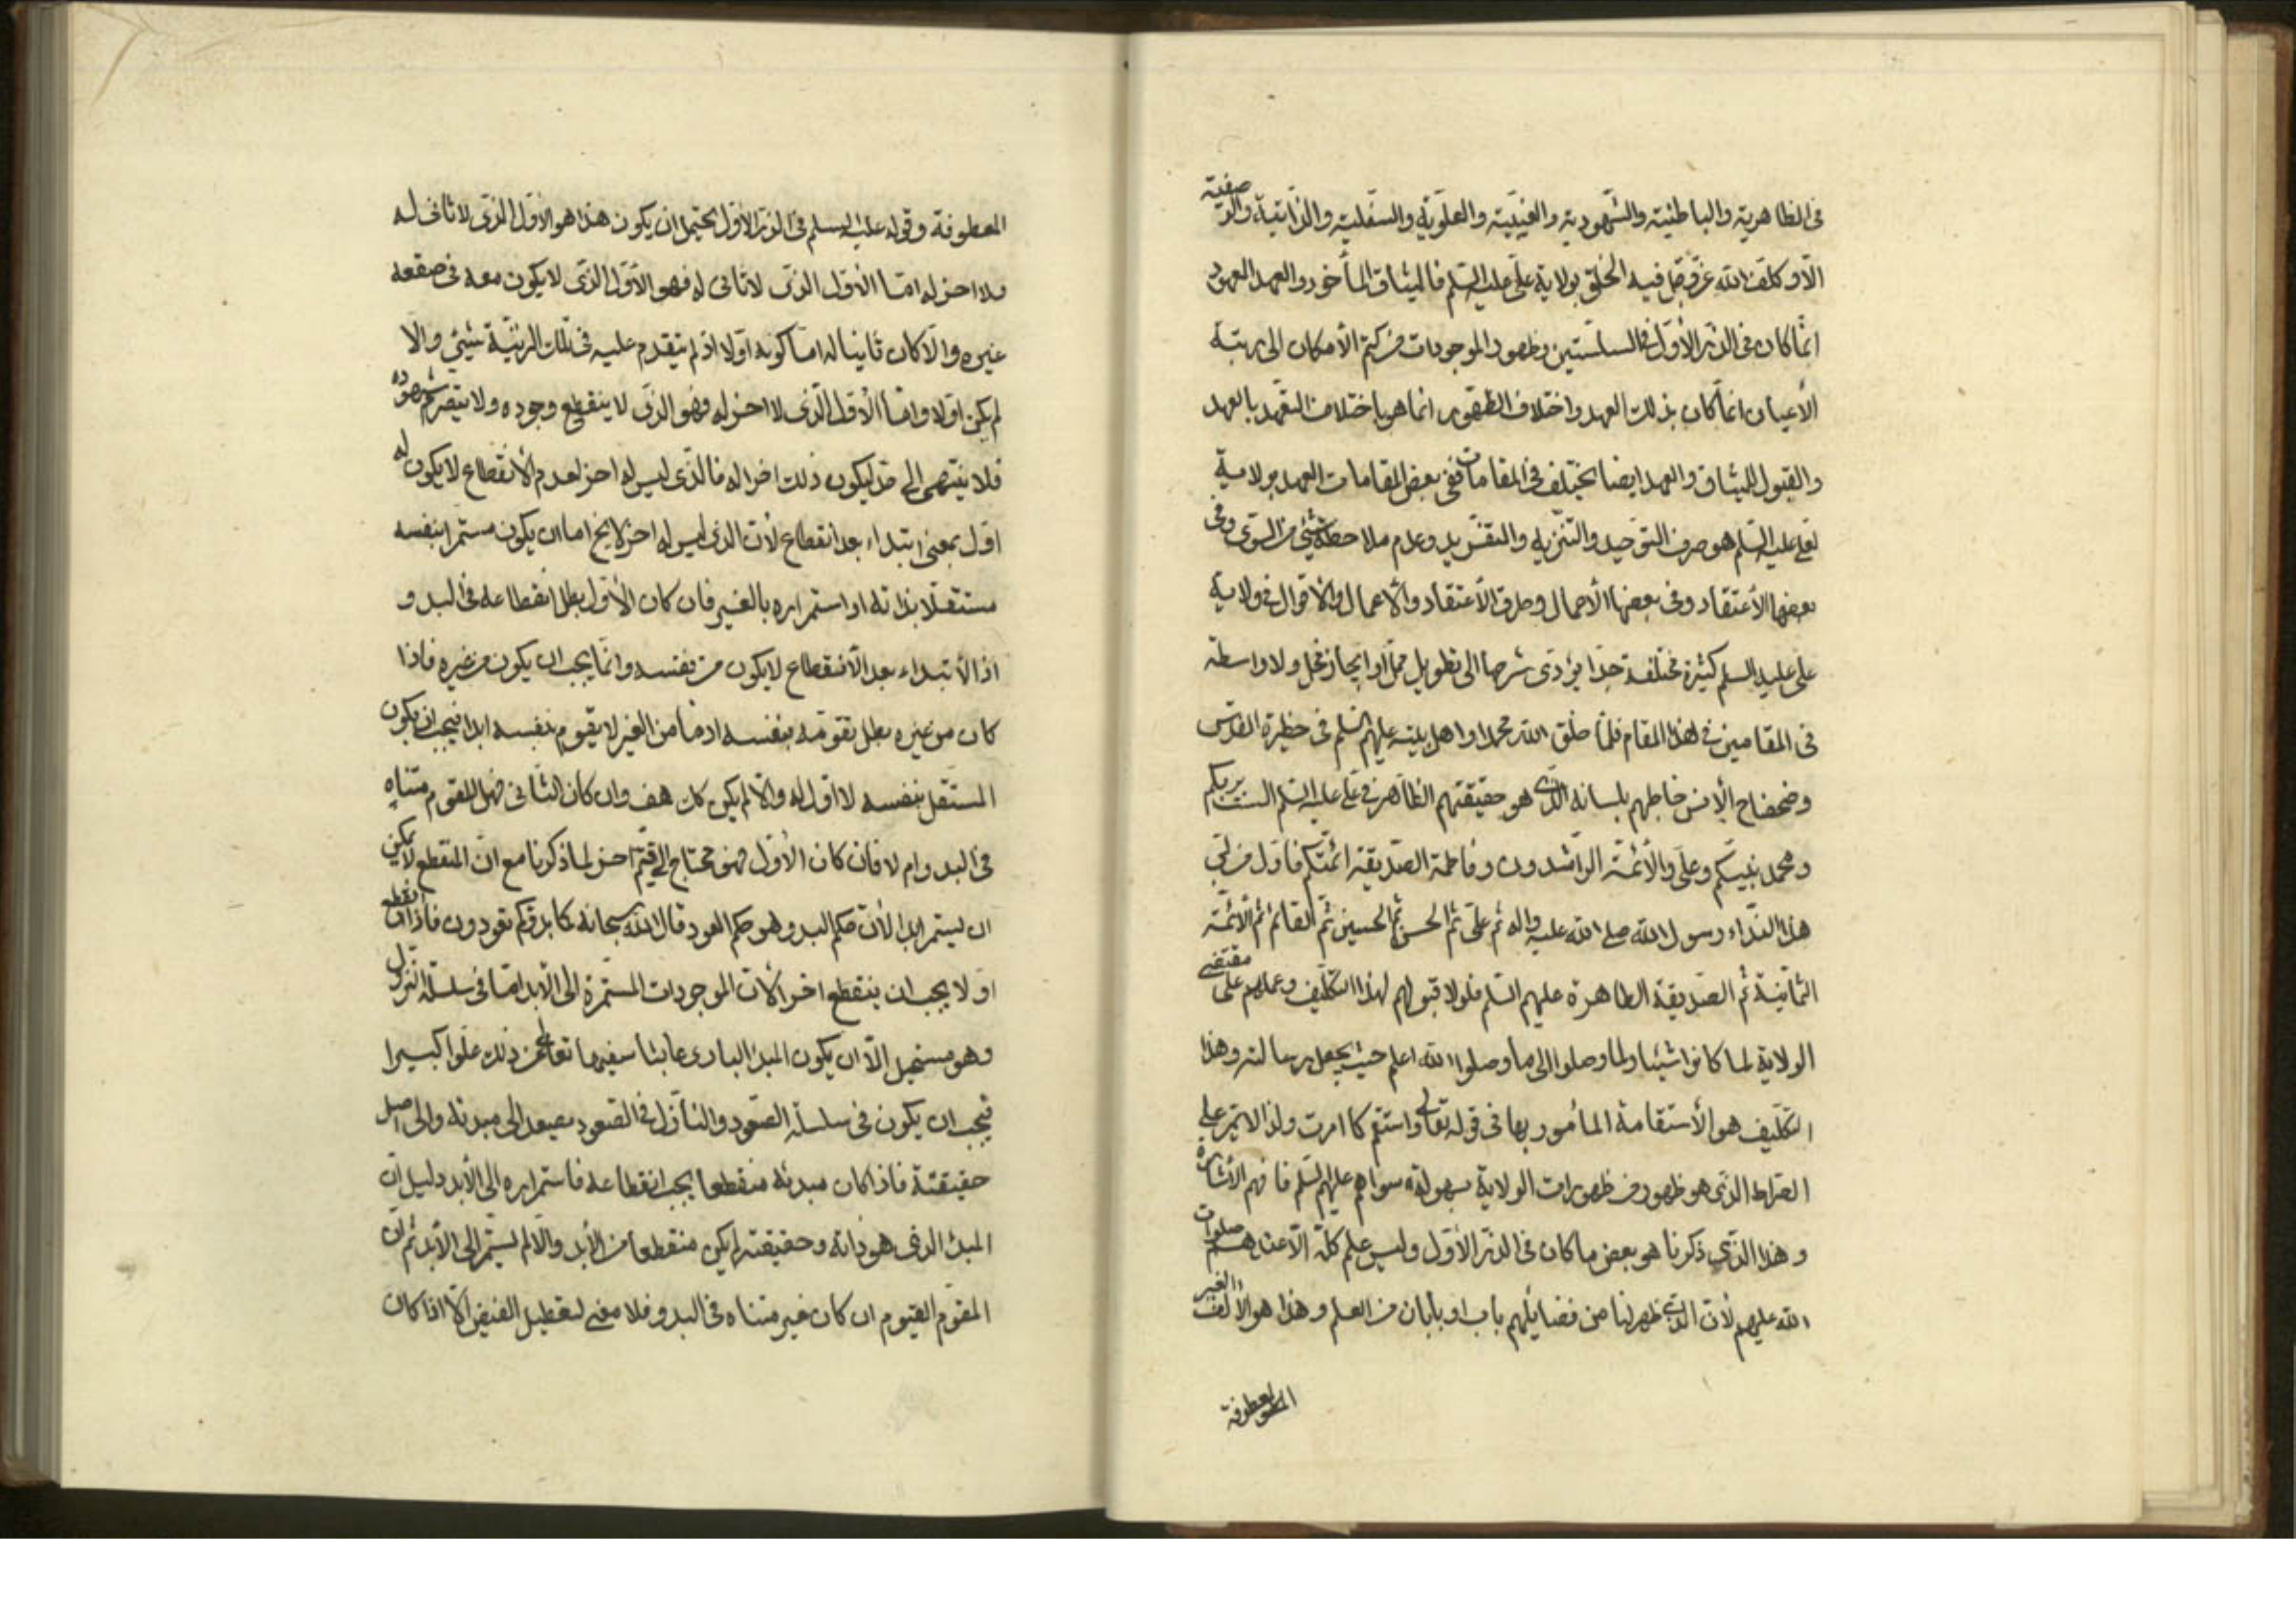 في الظاهرية والباطنية والشهودية والغيبية والعلوية والسفلية والذاتية والوصفية
الا وكلف الله عز وجل فيه الخلق بولاية علي عليه السلم فالميثاق المأخوذ والعهد المعهود
انما كان في الذر الاول في السلسلتين وظهور الموجودات من كتم الأمكان الى رتبة
الأعيان انما كان بذلك العهد واختلاف الظهور انما هو باختلاف التعهد بالعهد
والقبول للميثاق والعهد ايضا يختلف في المقامات ففي بعض المقامات العهد بولاية
علي عليه السلم هو صرف التوحيد والتنزيه والتفريد وعدم ملاحظة شيئ من السوى وفي
بعضها الأعتقاد وفي بعضها الأعمال وطرق الأعتقاد والأعمال والأقوال في ولاية
علي عليه السلم كثيرة مختلفة جدا يؤدى شرحها الى تطويل ممل او ايجاز مخل ولا واسطة
في المقامين في هذا المقام فلما خلق الله محمدا واهل بيته عليهم السلم في حظيرة القدس
وضحضاح الأنس خاطبهم بلسانه الذي هو حقيقتهم الظاهر في علي عليه السلم الست بربكم
ومحمد نبيكم وعلي والأئمة الراشدون وفاطمة الصديقة ائمتكم فاول من لبى
هذا النداء رسول الله صلى الله عليه واله ثم علي ثم الحسن ثم الحسين ثم القائم ثم الأئمة
الثمانية ثم الصديقة الطاهرة عليهم السلم فلولا قبولهم لهذا التكليف وعملهم على مقتضى
الولاية لما كانوا شيئا ولما وصلوا الى ما وصلوا الله اعلم حيث يجعل رسالته وهذا
التكليف هو الأستقامة المأمور بها في قوله تعالى واستقم كما امرت ولذا لا يمر على
الصراط الذي هو ظهور من ظهورات الولاية بسهولة سواهم عليهم السلم فافهم الأشارة
وهذا الذي ذكرنا هو بعض ما كان في الذر الأول وليس علم كله الا عندهم صلوات
الله عليهم لأن الذي ظهر لنا من فضايلهم باب او بابان من العلم وهذا هو الألف الغير
المعطوفة
المعطوفة وقوله عليه السلم في الذر الأول يحتمل ان يكون هذا هو الأول الذي لا ثاني له
ولا اخر له اما الأول الذي لا ثاني له فهو الأول الذي لا يكون معه في صقعه
غيره والا كان ثانيا له اما كونه اولا اذ لم يتقدم عليه في تلك الرتبة شيئ والا
لم يكن اولا واما الأول الذي لا اخر له فهو الذي لا ينقطع وجوده ولا يتصرم شهوده
فلا ينتهى الى حد ليكون ذلك اخرا له فالذي ليس له اخر لعدم الأنقطاع لا يكون له
اول بمعنى ابتداء بعد انقطاع لأن الذي ليس له اخر لا يخ اما ان يكون مستمرا بنفسه
مستقلا بذاته او استمراره بالغير فان كان الأول بطل انقطاعه في البدو
اذ الأبتداء بعد الأنقطاع لا يكون من نفسه وانما يجب ان يكون من غيره فاذا
كان من غيره بطل تقومه بنفسه اذ ما من الغير لا يقوم بنفسه ابدا فيجب ان يكون
المستقل بنفسه لا اول له والا لم يكن كك هف وان كان الثاني فهل المقوم متناه
في البدو ام لا فان كان الأول فهو محتاج الى قيم اخر لما ذكرنا مع ان المنقطع لا يمكن
ان يستمر ابدا لأن حكم البدو هو حكم العود قال الله سبحانه كما بدئكم تعودون فاذا انقطع
اولا يجب ان ينقطع اخرا لأن الموجودات المستمرة الى الأبد اما في سلسلة النزول
وهو مستحيل الا ان يكون المبدأ البارى عابثا سفيها تعالى عن ذلك علوا كبيرا
فيجب ان يكون في سلسلة الصعود والنازل في الصعود يصعد الى مبدئه والى اصل
حقيقته فاذا كان مبدئه منقطعا يجب انقطاعه فاستمراره الى الأبد دليل ان
المبدأ الذي هو ذاته وحقيقته لم يكن منقطعا من الأبد والا لم يستمر الى الأبد ثم ان
المقوم القيوم ان كان غير متناه في البدو فلا معنى لتعطيل الفيض الا اذا كان